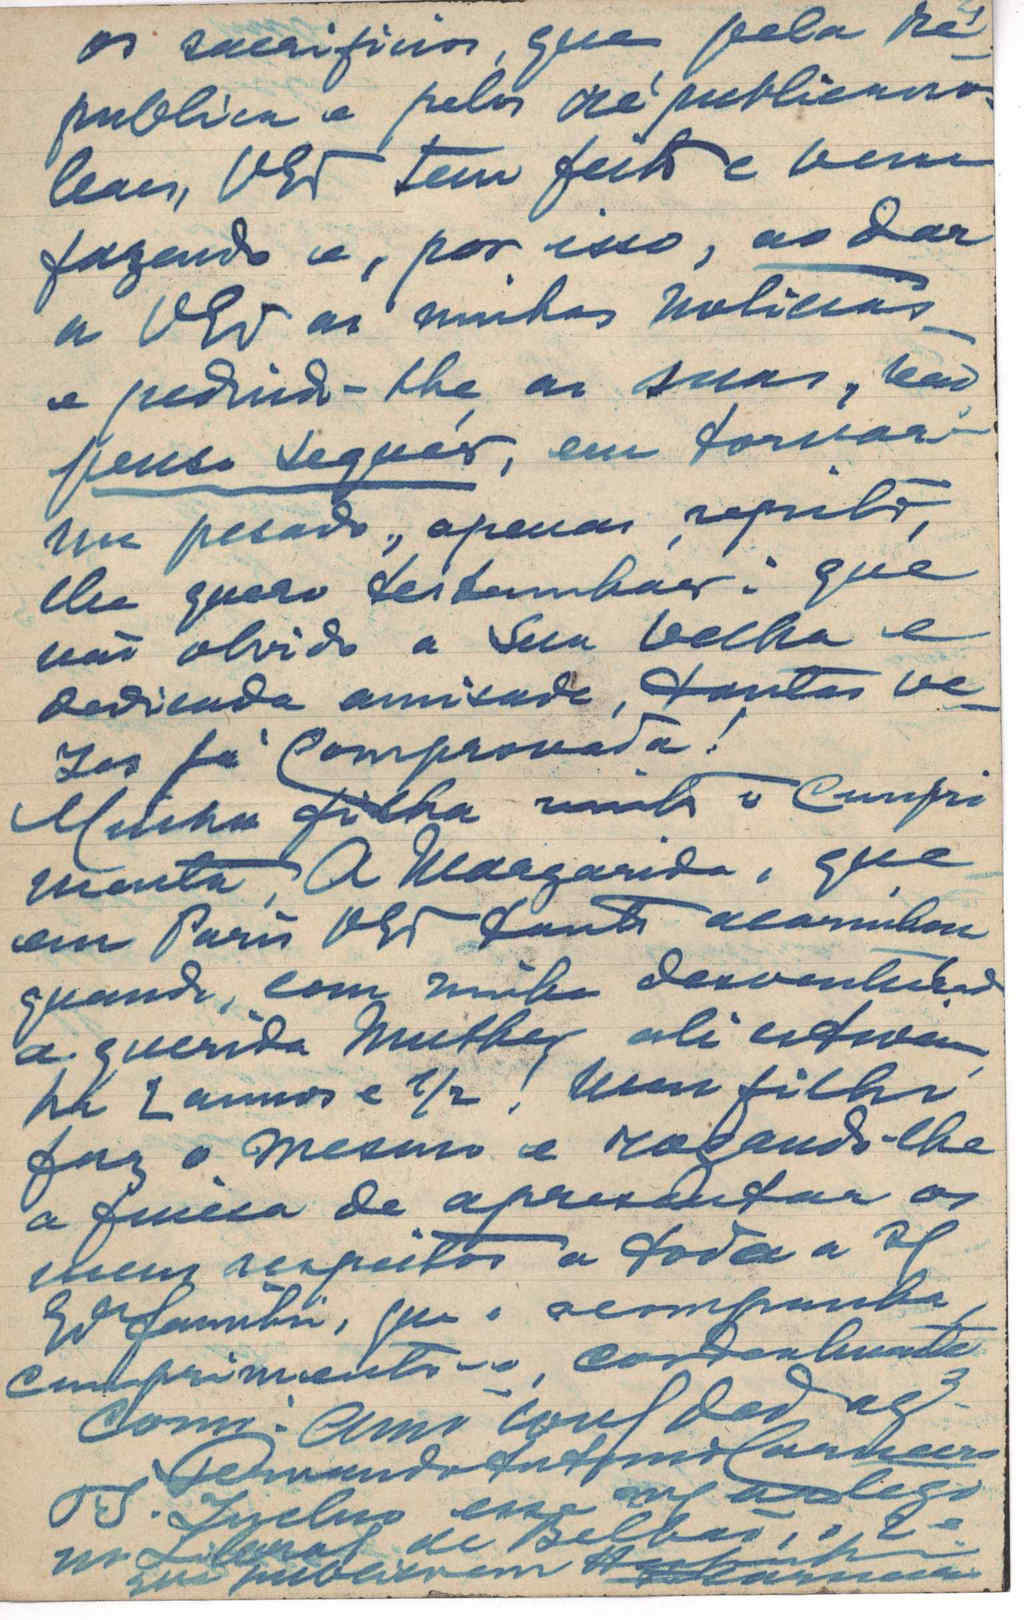 os sacrificios, que pela Ré-
publica e pelos républicanos
leaes, VEx tem feito e vem
fazendo e, por isso, ao dar
a VEx as minhas noticias
e pedindo-lhe as suas, não
penso sequér, em tornar-
me pesado, apenas, repito,
lhe quero testemunhar: que
não olvido a Sua velha e
dedicada amisade, tantas ve-
zes já comprovada!
Minha filha muito o cumpri
menta, A Margarida, que
em Paris VEx tanto acarinhou
quando, com minha desventurad
a querida Mulher ali estivam,
há 2 annos e 1/2! Meu filho
faz o mesmo e rogando-lhe
a fineza de apresentar os
meus respeitos a toda a
Exma familia, que o acompanha,
cumprimento-o, cordealmente
como: Amo ded
Fernando Antonio Carneiro
PS. Incluo esse
no Liberal de Bilbao, o,
que publicaram